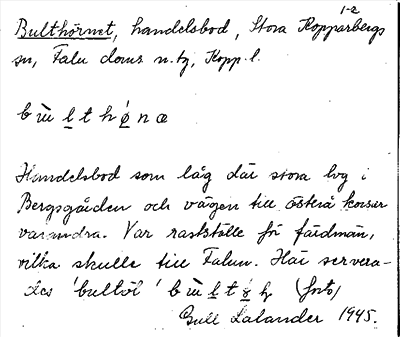 1-2
Bulthörnet, handelsbod, Stora Kopparbergs
sn, Falu doms n. tg, Kopp. l.
b ɯ̀ l t h ǿ n æ
Handelsbod som låg där stora lvg i
Bergsgården och vägen till Österå korsar
varandra. Var rastställe för färdmän,
vilka skulle till Falun. Här servera-
des 'bultöl' b ɯ̀ l t
Gull Lalander 1945.